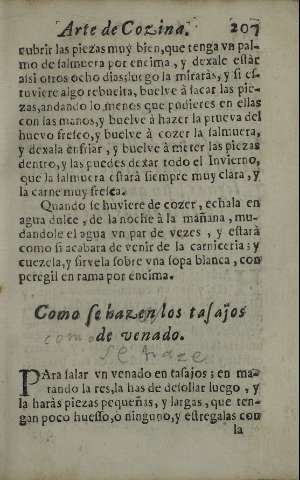 Arte de Cozina. 207
cubrir las piezas muy bien, que tenga vn pal-
mo de salmuera por encima, y dexale estàr
alsi otros ocho dias; luego la miraràs, y si es-
tuviere algo rebuelta, buelve à sacar las pie-
zas, andando lo menos que pudieres en ellas
con las manos, y buelve à hazer la prueva del
huevo fresco, y buelve à cozer la salmuera,
y dexala enfriar, y buelve à meter las piezas
dentro, y las puedes dexar todo el Invierno,
que la salmuera estarà siempre muy clara, y
la carne muy fresca.
Quando se huviere de cozer, echala en
agua dulce, de la noche à la mañana, mu-
dandole el agua vn par de vezes, y estarà
como si acabara de venir de la carniceria; y
cuezela, y sirvela sobre vna sopa blanca, con
peregil en rama por encima.
Como se hazen los tasajos
como de venado.
se haze
PAra salar vn venado en tasajos; en ma-
tando la res, la has de desollar luego, y
la haràs piezas pequeñas, y largas, que ten-
gan poco huesso, o ninguno, y estregalas con
la